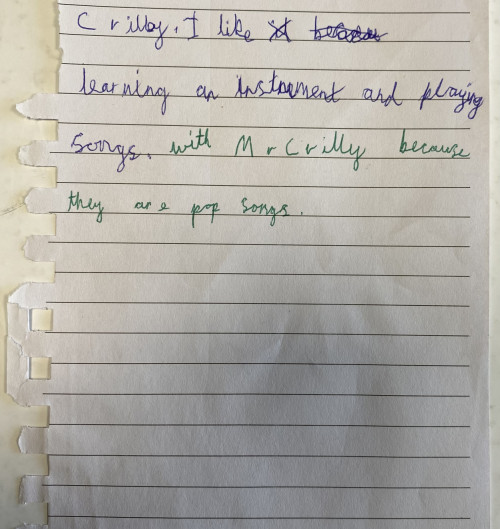 Crilly. I like
learning an instrument and playing
songs. with Mr Crilly because
they are pop songs.